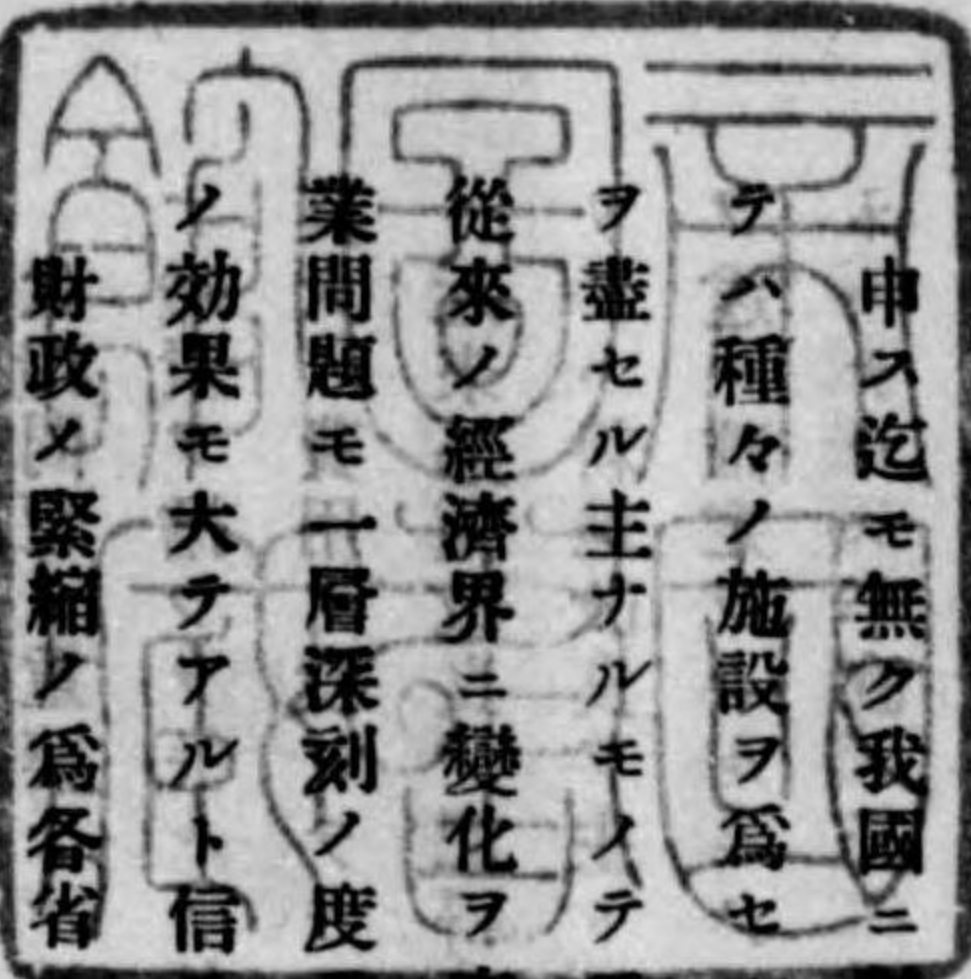 申ス迄モ無ク我國ニ
テハ種々ノ施設ヲ爲セ
ヲ盡セル主ナルモノテ
從來ノ經濟界ニ變化ヲ
業問題モ一層深刻ノ度
ノ効果モ大テアルト信
財政ノ緊縮ノ爲各省